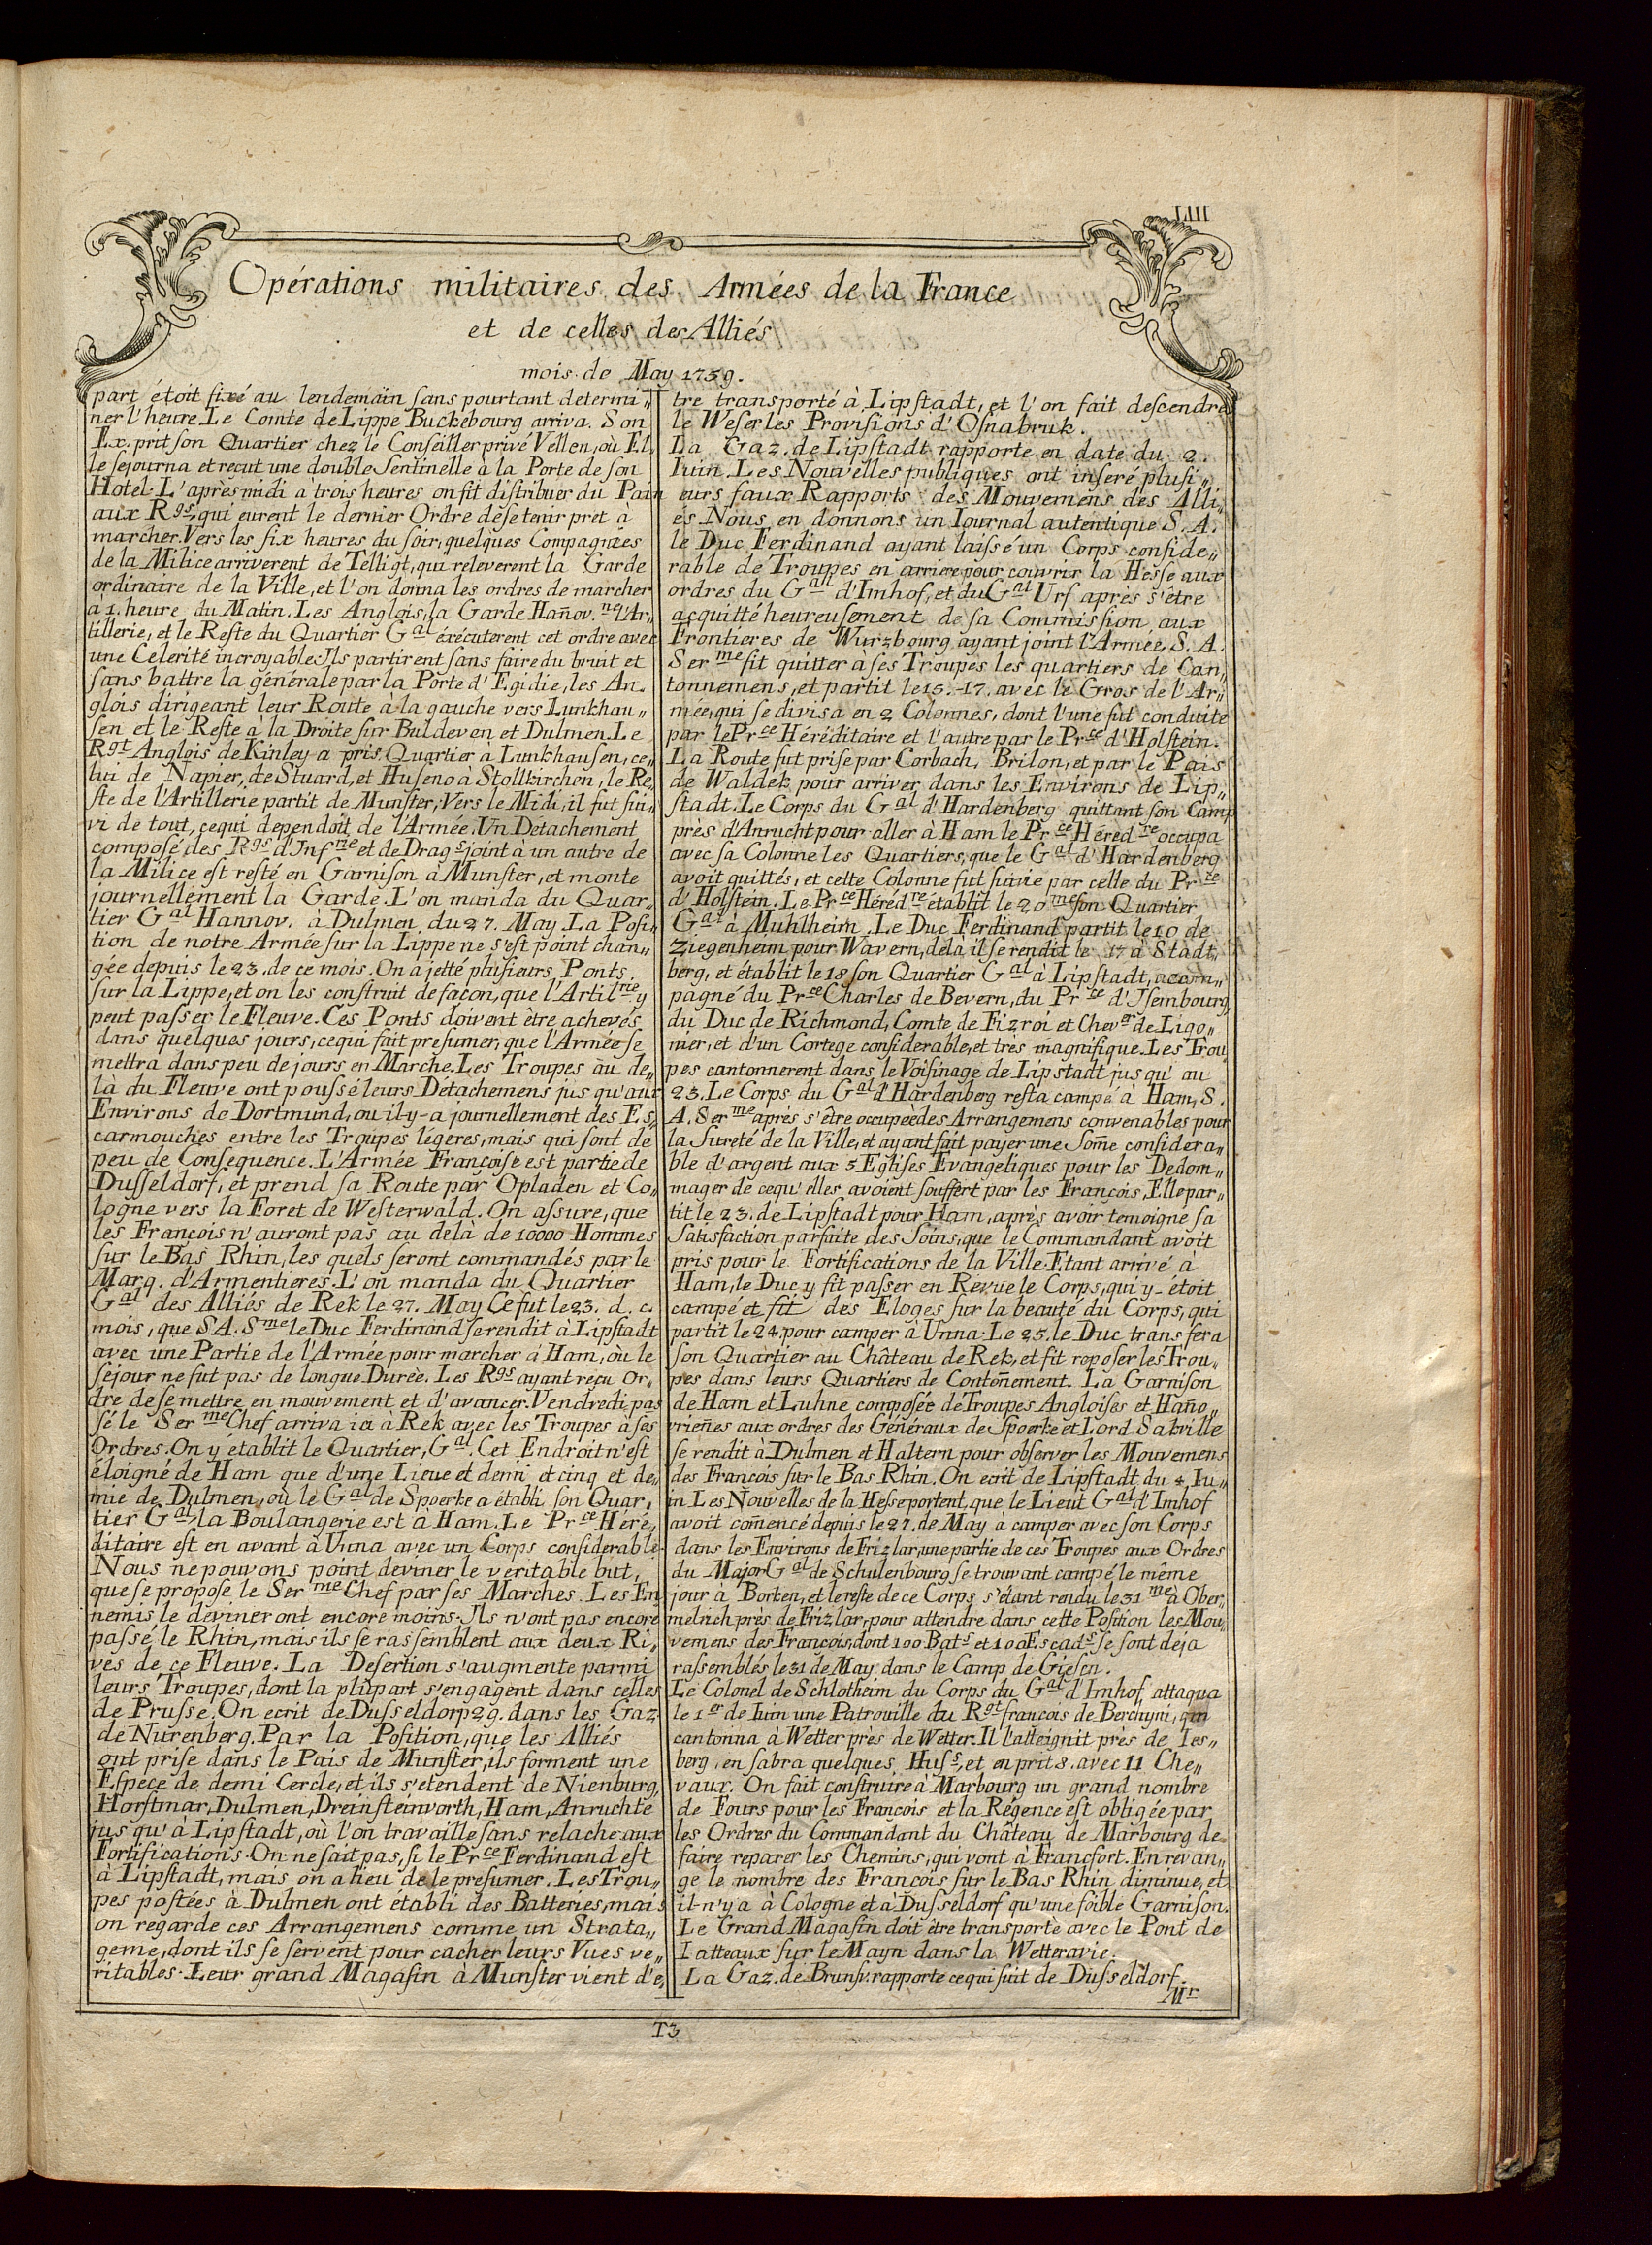 LIII
Opérations militaires des Armées de la France
et de celles des Alliés
mois de May 1759.
part étoit fixé au lendemain sans pourtant determi„
ner l'heure. Le Comte de Lippe Buckebourg arriva. Son
Ex. prit son Quartier chez le Conseiller privé Vellen, où El„
le sejourna et recut une double Sentinelle à la Porte de son
Hotel. L'après midi à trois heures on fit distribuer du Pain
aux Rgs, qui eurent le dernier Ordre de se tenir pret à
marcher. Vers les six heures du soir, quelques Compagnies
de la Milice arriverent de Telligt, qui releverent la Garde
ordinaire de la Ville, et l'on donna les ordres de marcher
à 1. heure du Matin. Les Anglois, la Garde Hañov.ne l'Ar„
tillerie, et le Reste du Quartier Gal éxécuterent cet ordre avec
une Celerité incroyable. Ils partirent sans faire du bruit et
sans battre la générale par la Porte d'Egidie, les An„
glois dirigeant leur Route à la gauche vers Lunkhau„
sen et le Reste à la Droite sur Buldeven et Dulmen. Le
Rgt Anglois de Kinley a pris Quartier à Lunkhausen, ce„
lui de Napier, de Stuard, et Huseno à Stollkirchen, le Re„
ste de l'Artillerie partit de Munster, Vers le Midi, il fut sui„
vi de tout, cequi dependoit de l'Armée. Un Detachement
composé des Rgs d'Infrie et de Drags joint à un autre de
la Milice est resté en Garnison à Munster, et monte
journellement la Garde. L'on manda du Quar„
tier Gal Hannov. à Dulmen du 27. May. La Posi„
tion de notre Armée sur la Lippe ne s'est point chan„
gée depuis le 23. de ce mois. On a jetté plusieurs Ponts
sur la Lippe, et on les construit de facon, que l'Artilrie y
peut passer le Fleuve. Ces Ponts doivent être achevés
dans quelques jours, cequi fait presumer, que l'Armée se
mettra dans peu de jours en Marche. Les Troupes au de„
là du Fleuve ont poussé leurs Détachemens jus qu'aux
Environs de Dortmund, ou il-y-a journellement des Es„
carmouches entre les Troupes légeres, mais qui sont de
peu de Consequence. L'Armée Françoise est partie de
Dusseldorf, et prend sa Route par Opladen et Co„
logne vers la Foret de Westerwald. On assure, que
les François n'auront pas au delà de 10000 Hommes
sur le Bas Rhin, les quels seront commandés par le
Marq. d'Armentieres. L'on manda du Quartier
Gal des Alliés de Rek le 27. May Ce fut le 23. d. c.
mois, que SA. Sme le Duc Ferdinand se rendit à Lipstadt
avec une Partie de l'Armée pour marcher à Ham, où le
séjour ne fut pas de longue Durée. Les Rgs ayant reçu Or„
dre de se mettre en mouvement et d'avancer. Vendredi pas
sé le Ser me Chef arriva ici à Rek avec les Troupes à ses
Ordres. On y établit le Quartier, Gal. Cet Endroit n'est
éloigné de Ham que d'une Lieue et demi et cinq et de„
mie de Dulmen, où le Gal de Spoerke a établi son Quar„
tier Gal, la Boulangerie est à Ham. Le Pr ce Héré„
ditaire est en avant à Unna avec un Corps considerable
Nous ne pouvons point deviner le veritable but,
que se propose le Ser me Chef par ses Marches. Les En
nemis le devineront encore moins. Ils n'ont pas encore
passé le Rhin, mais ils se rassemblent aux deux Ri„
ves de ce Fleuve. La Desertion s'augmente parmi
leurs Troupes, dont la plupart s'engagent dans celles
de Prusse. On ecrit de Dusseldorp 29. dans les Gaz
de Nurenberg. Par la Position, que les Alliés
ont prise dans le Pais de Munster, ils forment une
Espece de demi Cercle, et ils s'etendent de Nienburg,
Horstmar, Dulmen, Dreinsteinvorth, Ham, Anruchte
jus qu'à Lipstadt, où l'on travaille sans relache aux
Fortifications. On ne sait pas, si le Pr ce Ferdinand est
à Lipstadt, mais on a lieu de le presumer. Les Trou„
pes postées à Dulmen ont établi des Batteries, mais
on regarde ces Arrangemens comme un Strata„
geme, dont ils se servent pour cacher leurs Vues ve„
ritables. Leur grand Magasin à Munster vient d'e„
tre transporté à Lipstadt, et l'on fait descendre
le Weser les Provisions d'Osnabruk.
La Gaz. de Lipstadt rapporte en date du 2.
Iuin. Les Nouvelles publiques ont inseré plusi„
eurs faux Rapports des Mouvemens des Alli„
és Nous en donnons un Iournal autentique S. A.
le Duc Ferdinand ayant laissé un Corps conside„
rable de Troupes en arriere pour couvrir la Hesse aux
ordres du Gal d'Imhof, et du Gal Urf apres s'étre
acquitté heureusement de sa Commission aux
Frontieres de Wurzbourg ayant joint l'Armée, S. A.
Ser me fit quitter à ses Troupes les quartiers de Can„
tonnemens, et partit le 15.-17. avec le Gros de l'Ar„
mée, qui se divisa en 2 Colonnes, dont l'une fut conduite
par le Pr ce Héréditaire et l'autre par le Pr ce d'Holstein.
La Route fut prise par Corbach, Brilon, et par le Pais
de Waldek pour arriver dans les Environs de Lip„
stadt. Le Corps du Gal d'Hardenberg quittant son Camp
près d'Anrucht pour aller à Ham le Pr ce Héred re occupa
avec sa Colonne les Quartiers, que le Gal d'Hardenberg
avoit quittés, et cette Colonne fut suivie par celle du Pr ce
d'Holstein. Le Pr ce Héréd re établit le 20 me son Quartier
Gal à Muhlheim. Le Duc Ferdinand partit le 10 de
Ziegenheim pour Wavern, delà il se rendit le 17 à Stadt„
berg, et établit le 18 son Quartier Gal à Lipstadt, accom„
pagné du Pr ce Charles de Bevern, du Pr ce d'Isembourg,
du Duc de Richmond, Comte de Fizroi et Chever de Ligo„
nier, et d'un Cortege considerable, et très magnifique. Les Trou
pes cantonnerent dans le Voisinage de Lipstadt jus qu'au
23. Le Corps du Gal d'Hardenberg resta campé à Ham, S.
A. Ser me après s'être occupée des Arrangemens convenables pour
la Sureté de la Ville, et ayant fait payer une Som̃e considera„
ble d'argent aux 5 Eglises Evangeliques pour les Dedom„
mager de cequ'elles avoient souffert par les François, Elle par„
tit le 23. de Lipstadt pour Ham, après avoir temoigné sa
Satisfaction parfaite des Soins, que le Commandant avoit
pris pour le Fortifications de la Ville. Etant arrivé à
Ham, le Duc y fit passer en Revue le Corps, qui y- étoit
campé et fit des Eloges sur la beauté du Corps, qui
partit le 24. pour camper à Unna. Le 25. le Duc transfera
son Quartier au Château de Rek, et fit reposer les Trou„
pes dans leurs Quartiers de Contoñement. La Garnison
de Ham et Luhne composée de Troupes Angloises et Haño„
vrieñes aux ordres des Généraux de Spoerke et Lord Sakville
se rendit à Dulmen et Haltern pour observer les Mouvemens
des François sur le Bas Rhin. On ecrit de Lipstadt du 4. Iu„
in Les Nouvelles de la Hesse portent, que le Lieut Gal d'Imhof
avoit com̃encé depuis le 27. de May à camper avec son Corps
dans les Environs de Frizlar, une partie de ces Troupes aux Ordres
du Major Gal de Schulenbourg se trouvant campé le même
jour à Borken, et le reste de ce Corps s'étant rendu le 31 me à Ober„
melrich près de Frizlar, pour attendre dans cette Position les Mou„
vemens des Francois, dont 100 Bats et 100 Escads se sont deja
rassemblés le 31 de May dans le Camp de Giesen.
Le Colonel de Schlotheim du Corps du Gal d'Imhof attaqua
le 1er de Iuin une Patrouille du Rgt francois de Berchyni, qui
cantonna à Wetter près de Wetter. Il l'atteignit près de Ies„
berg, en sabra quelques Huss, et en prit 8. avec 11 Che„
vaux. On fait construire à Marbourg un grand nombre
de Fours pour les Francois et la Régence est obligée par
les Ordres du Commandant du Château de Marbourg de
faire reparer les Chemins, qui vont à Francfort. En revan„
ge le nombre des Francois sur le Bas Rhin diminue, et
il-n'y a à Cologne et à Dusseldorf qu'une foible Garnison.
Le Grand Magasin doit être transporté avec le Pont de
Batteaux sur le Mayn dans la Wetteravie.
La Gaz. de Brunsv. rapporte cequi suit de Dusseldorf.
Mr
T3